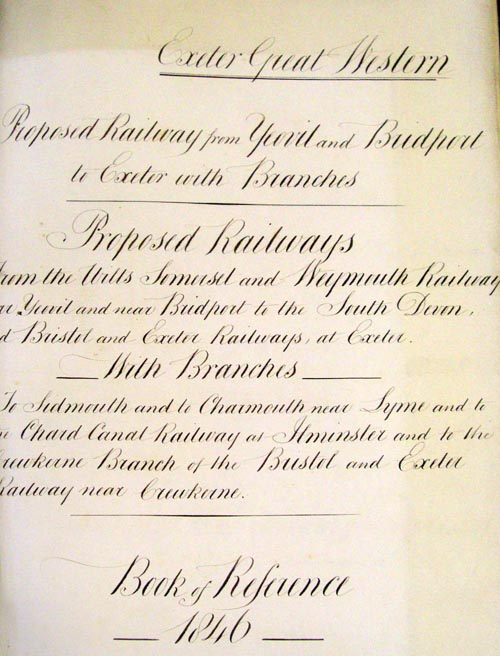 Exeter Great Western
Proposed Railway from Yeovil and Bridport
to Exeter with Branches
Proposed Railways
From the Wilts Somerset and Weymouth Railway
ar Yeovil and near Bridport to the South Devon,
d Bristol and Exeter Railways, at Exeter.
With Branches
To Sidmouth and to Charmouth near Lyme and to
e Chard Canal Railway at Ilminster and to the
Crewkerne Branch of the Bristol and Exeter
Railway near Crewkerne.
Book of Reference
1846